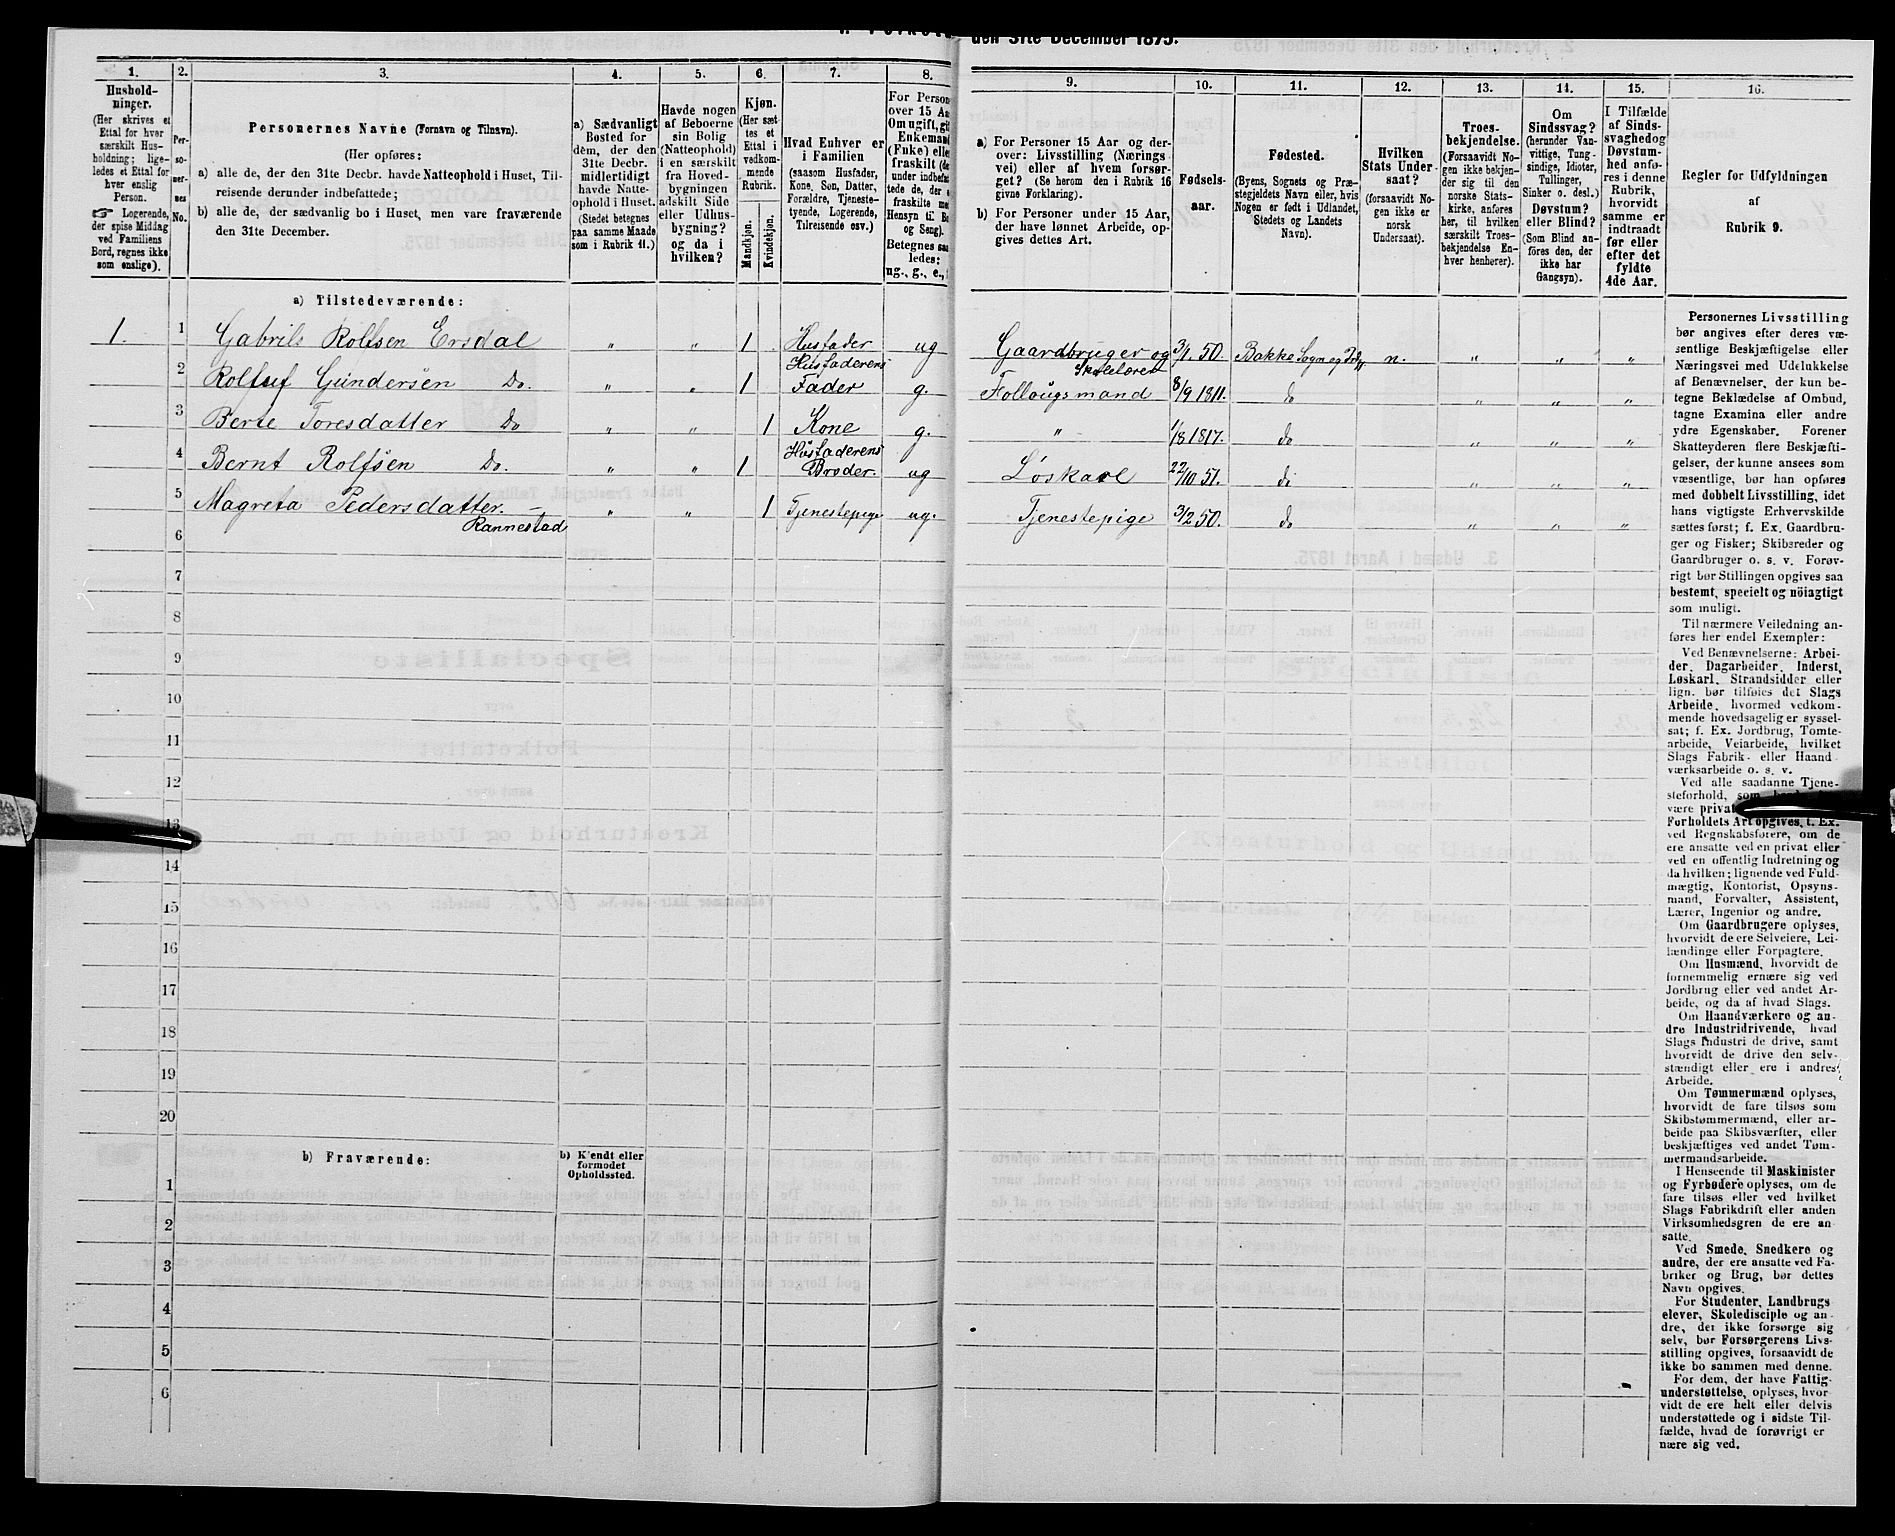 den 31te December 1875.
1.
2.
3.
4.
5.
6.
7.
8.
9.
10.
11.
12.
13.
14.
15.
16.
Hushold-
ninger.
(Her skrives et
Ettal for hver
særskilt Hus-
holdning; lige-
ledes et Ettal for
hver enslig
Person.
☞ Logerende,
der spise Middag
ved Familiens
Bord, regnes ikke
som enslige).
Per-
so-
ner-
nes
No.
Personernes Navne (Fornavn og Tilnavn).
(Her opføres:
a) alle de, der den 31te Decbr. havde Natteophold i Huset, Til-
reisende derunder indbefattede;
b) alle de, der sædvanlig bo i Huset, men vare fraværende
den 31te December.
a) Sædvanligt
Bosted for
dem, der den
31te Decbr.
midlertidigt
havde Natte-
ophold i Huset.
(Stedet betegnes
paa samme Maade
som i Rubrik 11.)
Havde nogen
af Beboerne
sin Bolig
(Natteophold)
i en særskilt
fra Hoved-
bygningen
adskilt Side
eller Udhus-
bygning?
og da i
hvilken?
Kjøn.
(Her sæt-
tes et
Ettal i
vedkom-
mende
Rubrik.
Mandkjøn.
Kvindekjøn.
Hvad Enhver er
i Familien
(saasom Husfader,
Kone, Søn, Datter,
Forældre, Tjeneste-
tyende, Logerende,
Tilreisende osv.)
For Person
over 15 Aa
Om ugift, gif
Enkemand
(Enke) elle
fraskilt (de
under indbefat
tede de, der e
fraskilte me
Hensyn til Bo
og Seng).
Betegnes saa
ledes:
ug., g., e., f
a) For Personer 15 Aar og der-
over: Livsstilling (Nærings-
vei) eller af hvem forsør-
get? (Se herom den i Rubrik 16
givne Forklaring).
b) For Personer under 15 Aar,
der have lønnet Arbeide, op-
gives dettes Art.
Fødsels-
aar.
Fødested.
(Byens, Sognets og Præ-
stegjeldets Navn eller, hvis
Nogen er født i Udlandet,
Stedets og Landets
Navn).
Hvilken
Stats Under-
saat?
(forsaavidt No-
gen ikke er
norsk
Undersaat).
Troes-
bekjendelse.
(Forsaavidt No-
gen ikke bekjen-
der sig til den
norske Stats-
kirke, anføres
her, til hvilken
særskilt Troes-
bekjendelse En-
hver henhører).
Om
Sindssvag?
(herunder Van-
vittige, Tung-
sindige, Idioter,
Tullinger,
Sinker o. desl.)
Døvstum?
eller Blind?
(Som Blind an-
føres den, der
ikke har
Gangsyn).
I Tilfælde
af Sinds-
svaghed og
Døvstum-
hed anfø-
res i denne
Rubrik,
hvorvidt
samme er
indtraadt
før eller
efter det
fyldte
4de Aar.
Regler for Udfyldningen
af
Rubrik 9.
a) Tilstedeværende:
1. 1 Gabrils Rolfsen Ersdal " " 1 Husfader ug Gaardbruger og Skolelærer 3/1 50. Bakke Sogn og n. " " "
2 Gundersen Do. " " 1 Husfaderens Fader g. Follougsmand 8/9 1811. do " " "
3 Berte Toresdatter Do " " 1 Kone g. " 1/8 1817. do " " "
4 Bernt Rolfsen Do. " " 1 Husfaderens Broder. ug Løskarl 22/10 51. do " " "
5 Magreta Pedersdatter. " " 1 Tjenestepige ug. Tjenestepige 3/2 50. do " " "
Rannestad
6
7
8
9
10
11
12
13
14
15
16
17
18
19
20
b) Fraværende:
b) Kjendt eller
formodet
Opholdssted.
1
2
3
4
5
6
Personernes Livsstilling
bør angives efter deres væ-
sentlige Beskjæftigelse eller
Næringsvei med Udelukkelse
af Benævnelser, der kun be-
tegne Beklædelse af Ombud,
tagne Examina eller andre
ydre Egenskaber. Forener
Skatteyderen flere Beskjæfti-
gelser, der kunne ansees som
væsentlige, bør han opføres
med dobbelt Livsstilling, idet
hans vigtigste Erhvervskilde
sættes først; f. Ex. Gaardbru-
ger og Fisker; Skibsreder og
Gaardbruger o. s. v. Forøv-
rigt bør Stillingen opgives saa
bestemt, specielt og nöiagtigt
som muligt.
Til nærmere Veiledning an-
føres her endel Exempler:
Ved Benævnelserne: Arbei-
der, Dagarbeider, Inderst,
Løskarl, Strandsidder eller
lign. bør tilføies det Slags
Arbeide, hvormed vedkom-
mende hovedsagelig er syssel-
sat; f. Ex. Jordbrug, Tomte-
arbeide, Veiarbeide, hvilket
Slags Fabrik- eller Haand
værksarbeide o. s. v.
Ved alle saadanne Tjene-
steforhold, som
være privat
Forholdets Art opgives, f. Ex.
ved Regnskabsførere, om de
ere ansatte ved en privat eller
ved en offentlig Indretning og
da hvilken; lignende ved Fuld-
mægtig, Kontorist, Opsyns-
mand, Forvalter, Assistent,
Lærer, Ingeniør og andre.
Om Gaardbrugere oplyses,
hvorvidt de ere Selveiere, Lei-
lændinge eller Forpagtere.
Om Husmænd, hvorvidt de
fornemmelig ernære sig ved
Jordbrug eller ved andet Ar-
beide, og da af hvad Slags.
Om Haandværkere og an-
dre Industridrivende, hvad
Slags Industri de drive, samt
hvorvidt de drive den selv-
stændigt eller ere i andres
Arbeide.
Om Tømmermænd oplyses,
hvorvidt de fare tilsøs som
Skibstømmermænd, eller ar-
beide paa Skibsværfter, eller
beskjæftiges ved andet Tøm-
mermandsarbeide.
I Henseende til Maskinister
og Fyrbødere oplyses, om de
fare tilsøs eller ved hvilket
Slags Fabrikdrift eller anden
Virksomhedsgren de ere an-
satte.
Ved Smede, Snedkere og
andre, der ere ansatte ved Fa-
briker og Brug, bør dettes
Navn opgives.
For Studenter, Landbrugs
elever, Skoledisciple og an-
dre, der ikke forsørge sig
selv, bør Forsørgerens Livs-
stilling opgives, forsaavidt de
ikke bo sammen med denne.
For dem, der have Fattig-
understøttelse, oplyses, hvor-
vidt de ere helt eller delvis
understøttede og i sidste Til-
fælde, hvad de forøvrigt er
nære sig ved.